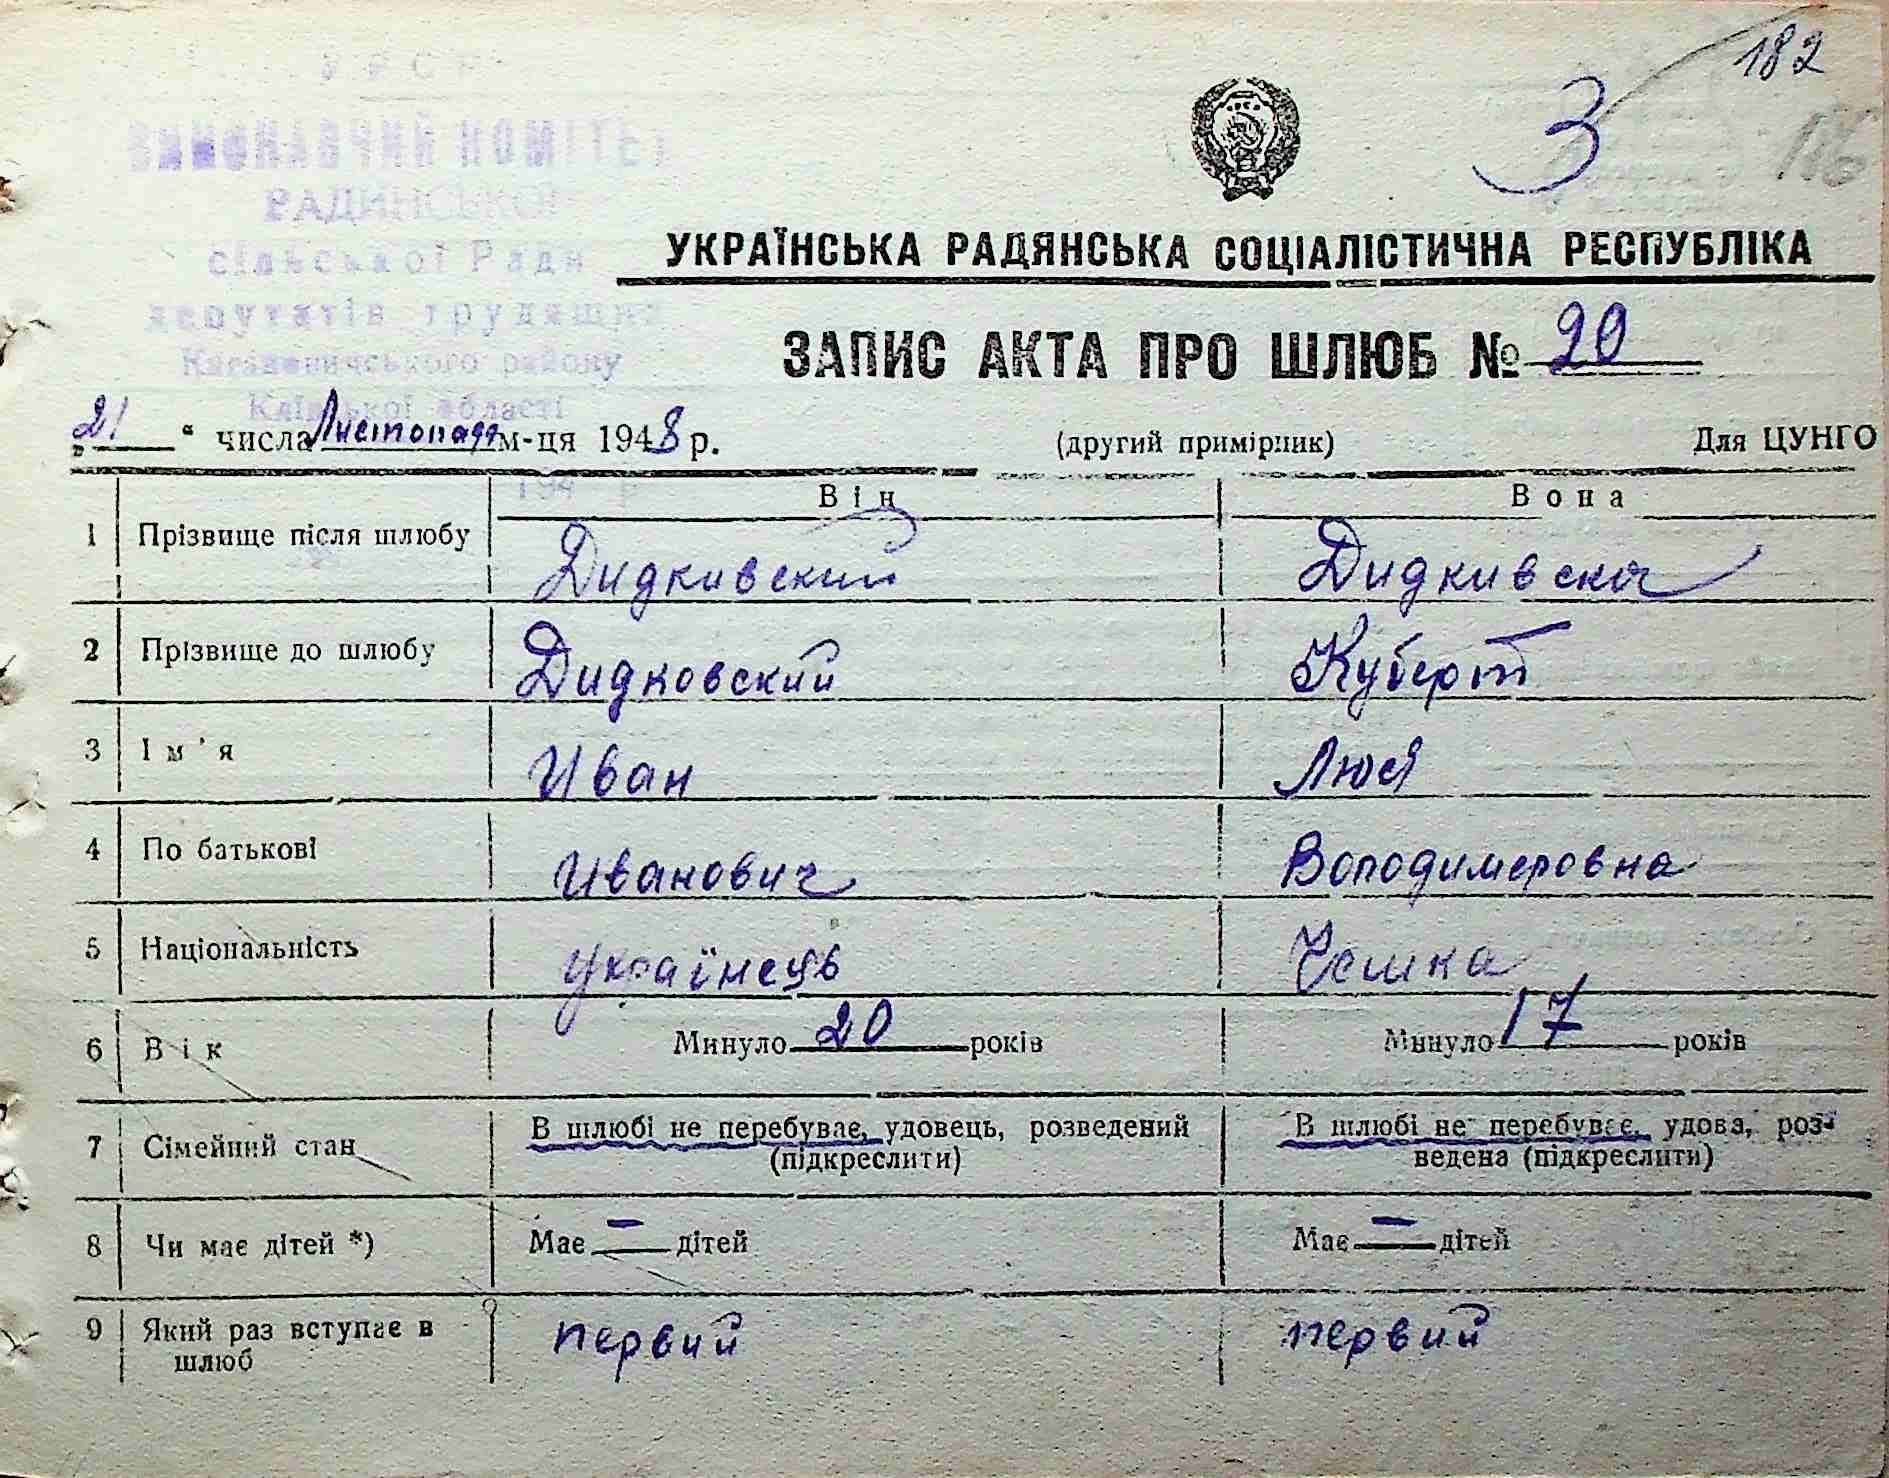 182
3
116
УРСР
ВИКОНАВЧИЙ КОМІТЕТ
РАДИНСЬКОЇ
сільської Ради
депутатів трудящих
району
Київської області
194 р
УКРАЇНСЬКА РАДЯНСЬКА СОЦІАЛІСТИЧНА РЕСПУБЛІКА
ЗАПИС АКТА ПРО ШЛЮБ № 20
„21“ числа Листопада м-ця 1948 р. (другий примірник) Для ЦУНГО
Він Вона
1 Прізвище після шлюбу Дидкивский Дидкивска
2 Прізвище до шлюбу Дидковский Куберт
3 Ім'я Иван Люся
4 По батькові Иванович Володимеровна
5 Національність Українець Чешка
6 Вік Минуло 20 років Минуло 17 років
7 Сімейний стан В шлюбі не перебуває, удовець, розведений В шлюбі не перебуває, удова, роз-
(підкреслити) ведена (підкреслити)
8 Чи має дітей *) Має — дітей Має — дітей
9 Який раз вступає в первий первий
шлюб